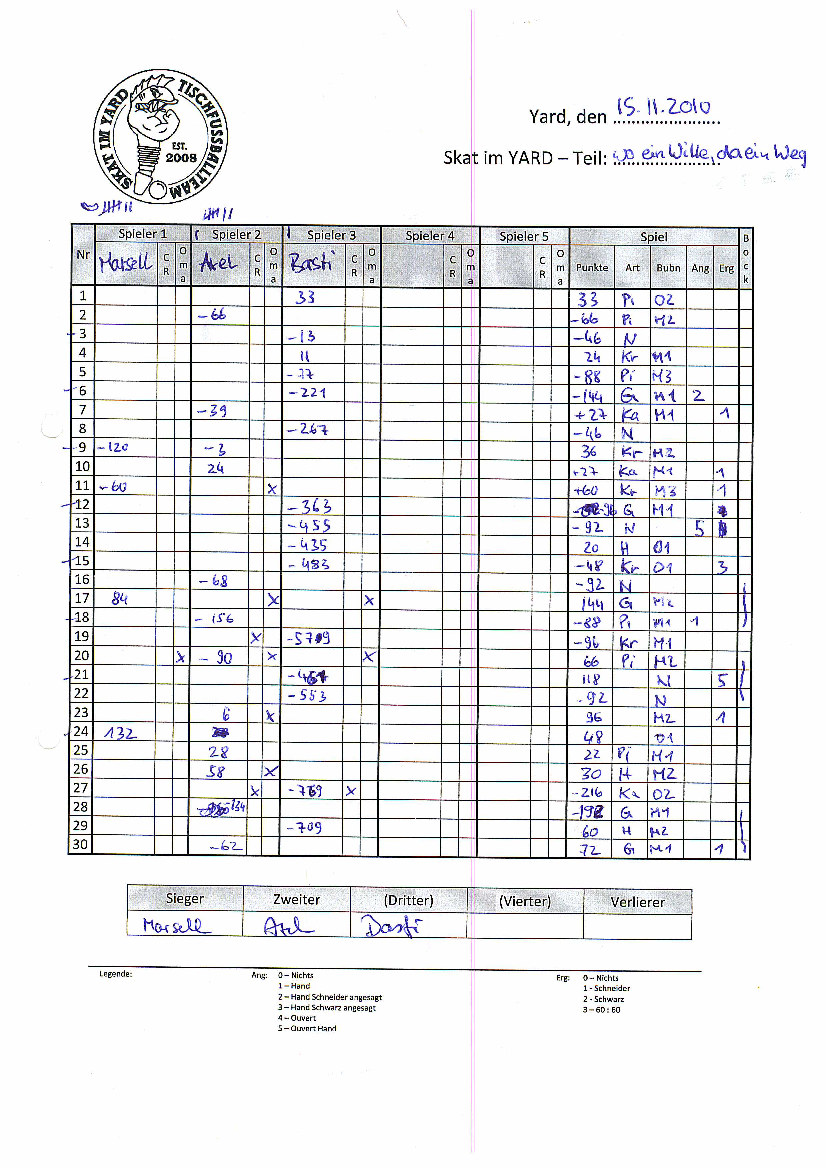 SKAT IM YARD TISCHFUSSBALLTEAM
EST. 2008
Yard, den 15.11.2010
Skat im YARD – Teil: wo ein Wille, da ein Weg
Spieler 1 Spieler 2 Spieler 3 Spieler 4 Spieler 5 Spiel Bock
Nr Marsell CR Oma Axel CR Oma Basti CR Oma CR Oma CR Oma Punkte Art Bubn Ang Erg
1 33 33 Pi O2
2 -66 -66 Pi M2
3 -13 -46 N
4 11 24 Kr M1
5 -77 -88 Pi M3
6 -221 -144 G M1 2
7 -39 +27 Ka M1 1
8 -267 -46 N
9 -120 -3 36 Kr M2
10 24 +27 Ka M1 1
11 -60 X +60 Kr M3 1
12 -363 -96 G M1
13 -455 -92 N 5
14 -435 20 H O1
15 -483 -48 Kr O1 3
16 -68 -92 N
17 84 X X 144 G M2
18 -156 -88 Pi M1 1
19 X -96 Kr M1
20 X -90 X X 66 Pi M2
21 118 N 5
22 -553 -92 N
23 6 X 96 M2 1
24 132 48 O1
25 28 22 Pi M1
26 58 X 30 H M2
27 X -769 X -216 Ka O2
28 -134 -192 G M1
29 -709 60 H M2
30 -62 72 G M1 1
Sieger Zweiter (Dritter) (Vierter) Verlierer
Marsell Axel Basti
Legende: Ang: 0 – Nichts Erg: 0 – Nichts
1 – Hand 1 - Schneider
2 – Hand Schneider angesagt 2 - Schwarz
3 – Hand Schwarz angesagt 3 – 60 : 60
4 – Ouvert
5 – Ouvert Hand